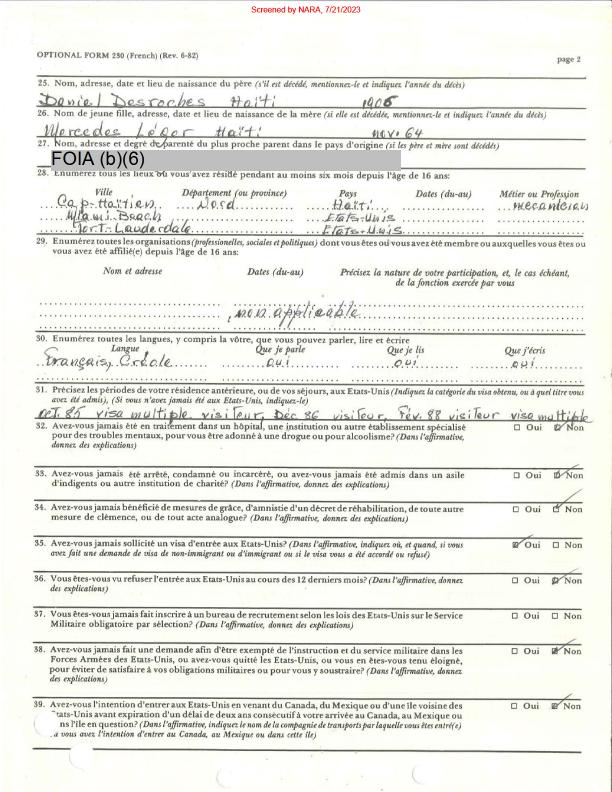 Screened by NARA, 7/21/2023
OPTIONAL FORM 230 (French) (Rev. 6-82)
page 2
25. Nom, adresse, date et lieu de naissance du père (s'il est décédé, mentionnez-le et indiquez l'année du décès)
Daniel Desroches Haïti 1906
26. Nom de jeune fille, adresse, date et lieu de naissance de la mère (si elle est décédée, mentionnez-le et indiquez l'année du décès)
Mercedes Léger Haïti nov. 64
27. Nom, adresse et degré de parenté du plus proche parent dans le pays d'origine (si les père et mère sont décédés)
FOIA (b)(6)
28. Enumérez tous les lieux où vous avez résidé pendant au moins six mois depuis l'âge de 16 ans:
Ville Département (ou province) Pays Dates (du-au) Métier ou Profession
Cap-Haïtien Nord Haïti mecanicien
Miami Beach Etats-Unis
Fort-Lauderdale Etats-Unis
29. Enumérez toutes les organisations (professionelles, sociales et politiques) dont vous êtes ou vous avez été membre ou auxquelles vous êtes ou
vous avez été affilié(e) depuis l'âge de 16 ans:
Nom et adresse Dates (du-au) Précisez la nature de votre participation, et, le cas échéant,
de la fonction exercée par vous
non applicable
30. Enumérez toutes les langues, y compris la vôtre, que vous pouvez parler, lire et écrire
Langue Que je parle Que je lis Que j'écris
Français, Créole oui oui oui
31. Précisez les périodes de votre résidence antérieure, ou de vos séjours, aux Etats-Unis (Indiquez la catégorie du visa obtenu, ou à quel titre vous
avez été admis), (Si vous n'avez jamais été aux Etats-Unis, indiquez-le)
oct. 85 visa multiple visiteur, Déc 86 visiteur, Fév. 88 visiteur visa multiple
32. Avez-vous jamais été en traitement dans un hôpital, une institution ou autre établissement spécialisé
pour des troubles mentaux, pour vous être adonné à une drogue ou pour alcoolisme? (Dans l'affirmative,
donnez des explications)
Oui Non
33. Avez-vous jamais été arrêté, condamné ou incarcéré, ou avez-vous jamais été admis dans un asile
d'indigents ou autre institution de charité? (Dans l'affirmative, donnez des explications)
Oui Non
34. Avez-vous jamais bénéficié de mesures de grâce, d'amnistie d'un décret de réhabilitation, de toute autre
mesure de clémence, ou de tout acte analogue? (Dans l'affirmative, donnez des explications)
Oui Non
35. Avez-vous jamais sollicité un visa d'entrée aux Etats-Unis? (Dans l'affirmative, indiquez où, et quand, si vous
avez fait une demande de visa de non-immigrant ou d'immigrant ou si le visa vous a été accordé ou refusé)
Oui Non
36. Vous êtes-vous vu refuser l'entrée aux Etats-Unis au cours des 12 derniers mois? (Dans l'affirmative, donnez
des explications)
Oui Non
37. Vous êtes-vous jamais fait inscrire à un bureau de recrutement selon les lois des Etats-Unis sur le Service
Militaire obligatoire par sélection? (Dans l'affirmative, donnez des explications)
Oui Non
38. Avez-vous jamais fait une demande afin d'être exempté de l'instruction et du service militaire dans les
Forces Armées des Etats-Unis, ou avez-vous quitté les Etats-Unis, ou vous en êtes-vous tenu éloigné,
pour éviter de satisfaire à vos obligations militaires ou pour vous y soustraire? (Dans l'affirmative, donnez des
explications)
Oui Non
39. Avez-vous l'intention d'entrer aux Etats-Unis en venant du Canada, du Mexique ou d'une île voisine des
Etats-Unis avant expiration d'un délai de deux ans consécutif à votre arrivée au Canada, au Mexique ou
ns l'île en question? (Dans l'affirmative, indiquez le nom de la compagnie de transports par laquelle vous êtes entré(e)
a vous avez l'intention d'entrer au Canada, au Mexique ou dans cette île)
Oui Non